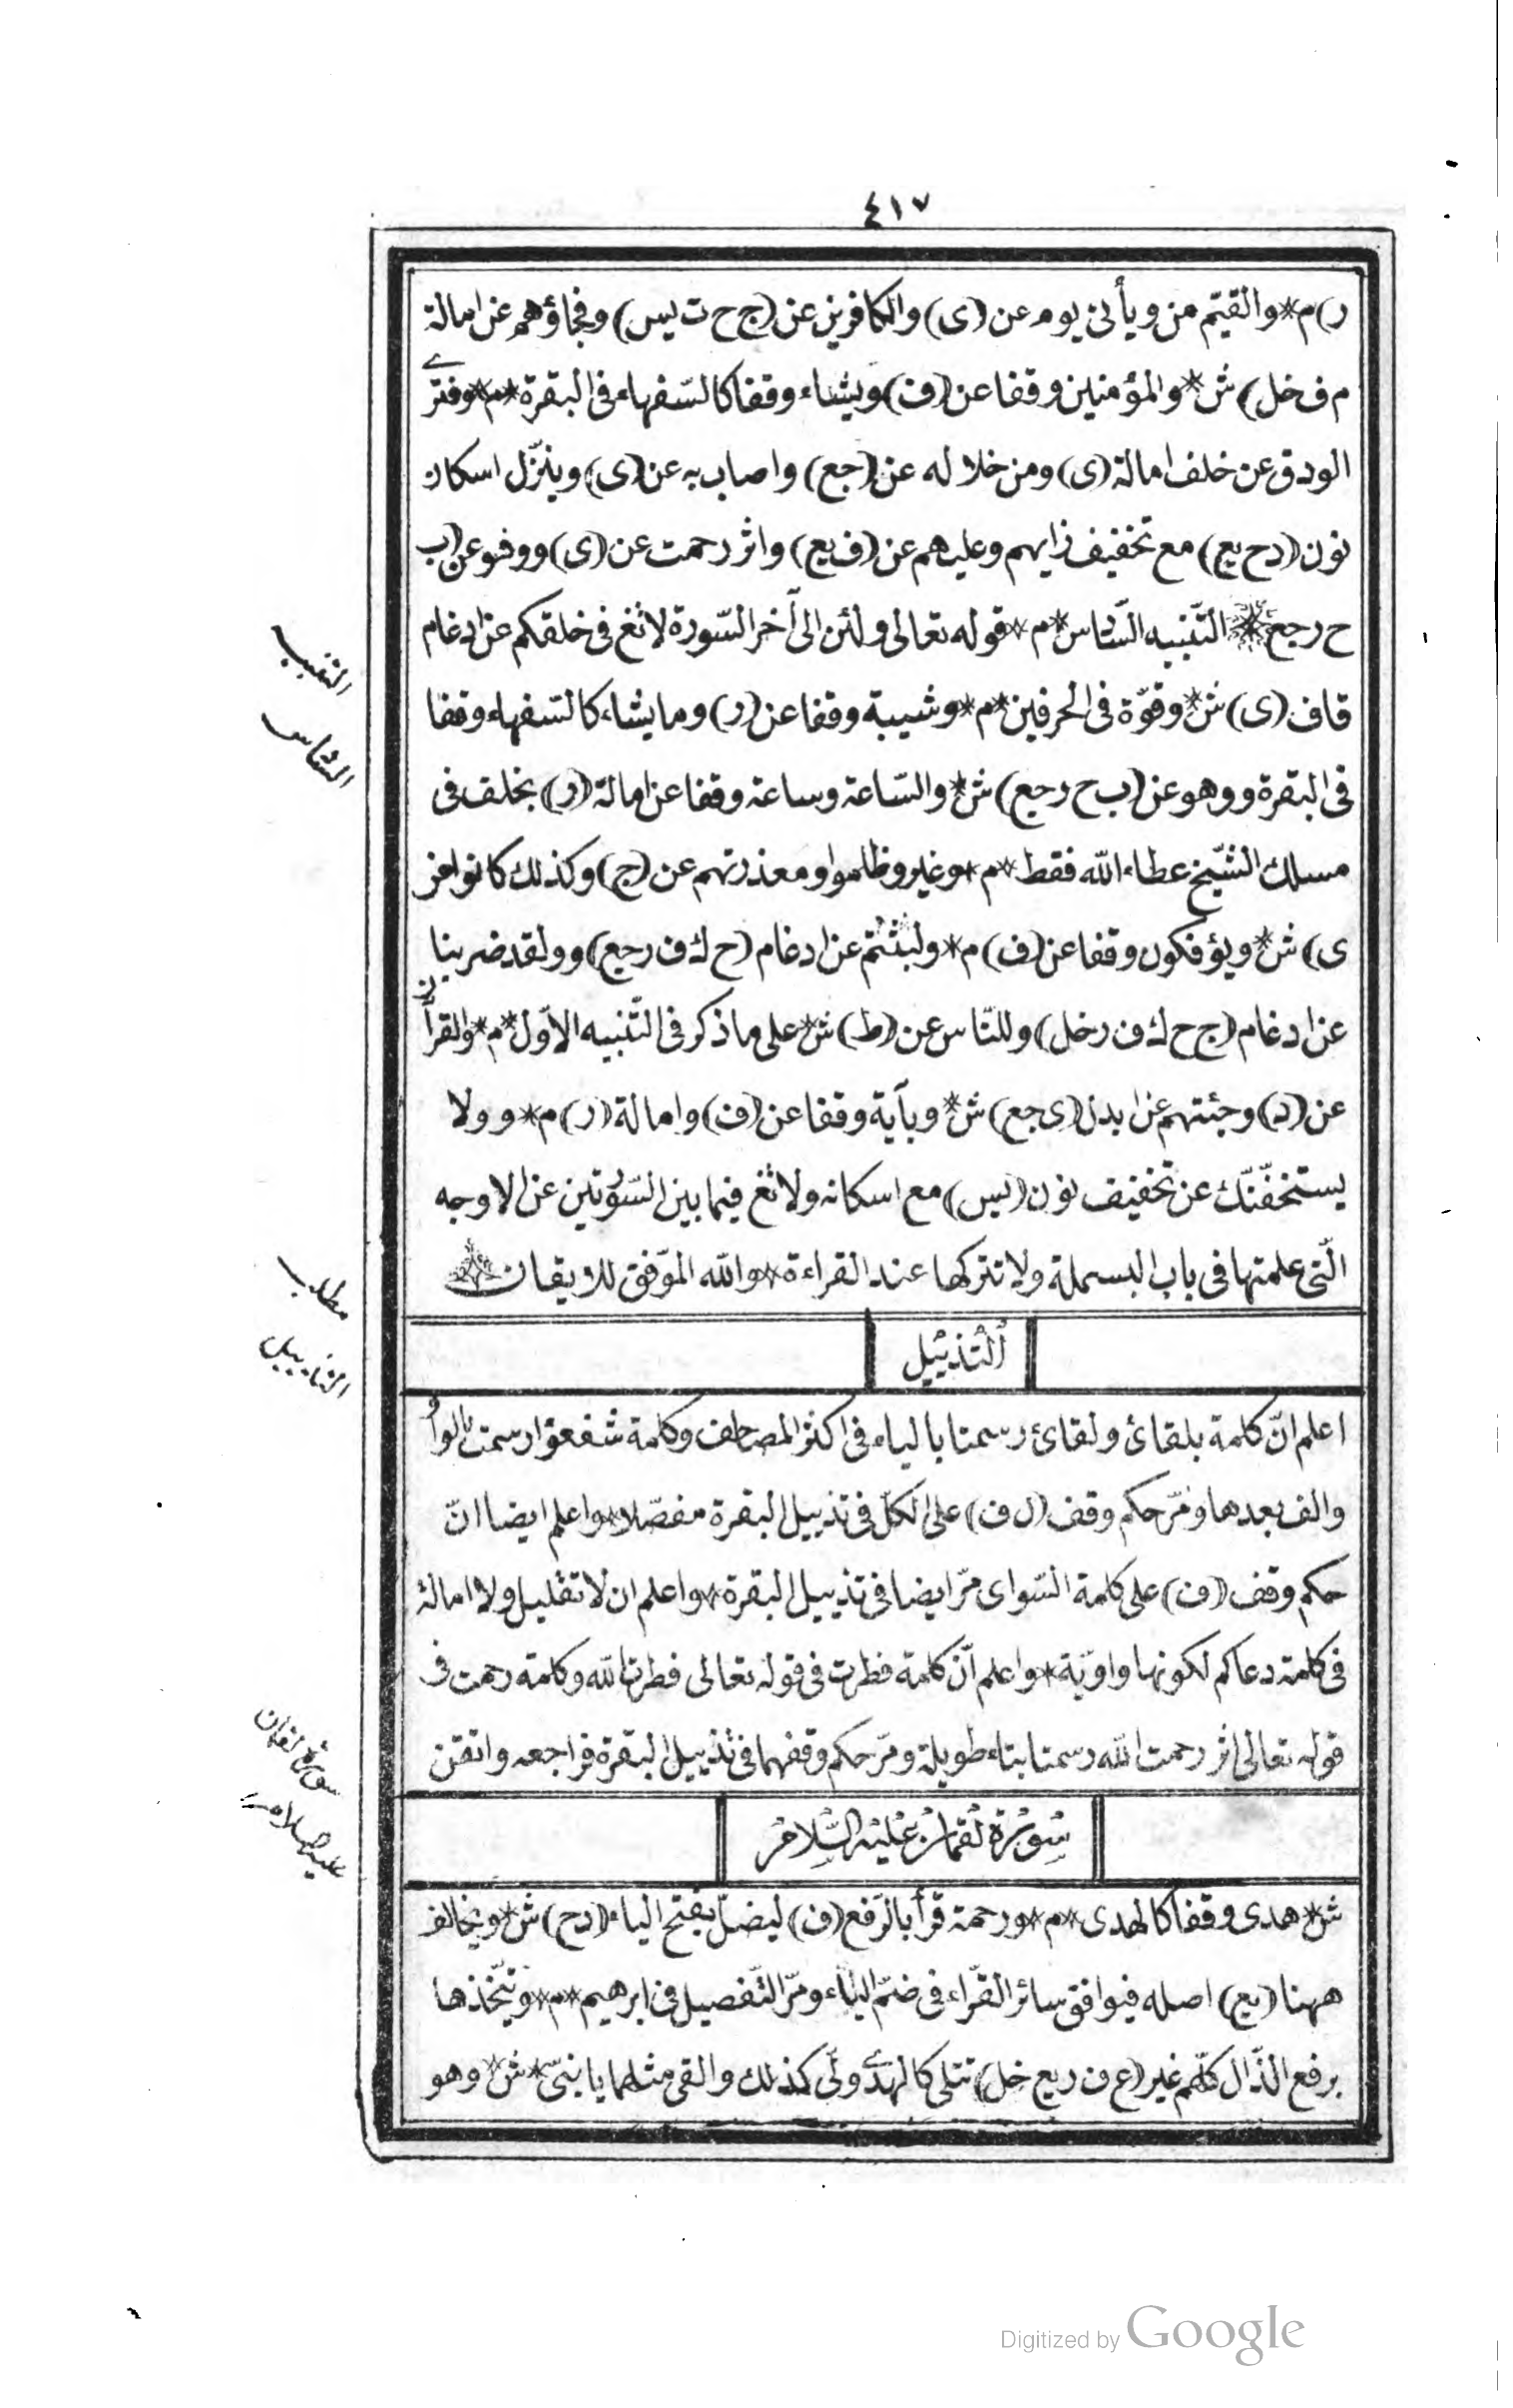 ٤١٧
ر) م * والقيّم من ويأتى يوم عن (ى) والكافرين عن (ج ح ت يس) وفجاؤهم عن امالة
م ف خل) ش * والمؤمنين وقفا عن (ف) ويشاء وقفا كالسّفهاء فى البقرة * م * وفترى
الودق عن خلف امالة (ى) ومن خلاله عن (جع) واصاب به عن (ى) وينزّل اسكان
نون (د ح يع) مع تخفيف زايهم وعليهم عن (ف يع) واثر رحمت عن (ى) ووفهو عن (ب
ح ر جع * التّنبيه السّادس * م * قوله تعالى ولئن الى آخر السّورة لا تغ فى خلقكم عن ادغام
قاف (ى) ش * وقوّة فى الحرفين * م * وشيبة وقفا عن (ر) وما يشاء كالسّفهاء وقفا
فى البقرة ووهو عن (ب ح ر جع) ش * والسّاعة وساعة وقفا عن امالة (ر) بخلف فى
مسلك الشّيخ عطاء الله فقط * م * وغير وظلموا ومعذرتهم عن (ج) وكذلك كانوا عن
ى) ش * ويؤفكون وقفا عن (ف) م * ولبثتم عن ادغام (ح ك ف ر جع) وولقد ضربنا
عن ادغام (ج ح ك ف ر خل) وللنّاس عن (ط) ش * على ما ذكر فى التّنبيه الاوّل * م * والقرآن
عن (د) وجئتهم عن ابدل (ى جع) ش * وبآية وقفا عن (ف) وامالة (ر) م * وولا
يستخفّنّك عن تخفيف نون (يس) مع اسكانه ولا تغ فيما بين السّورتين عن الاوجه
الّتى علمتها فى باب البسملة ولا تتركها عند القراءة * والله الموّفق للايقان
اَلتَّذْيِيلُ
اعلم انّ كلمة بلقائ ولقائ رسمتا بالياء فى اكثر المصاحف وكلمة شفعؤا رسمت بالواو
والف بعدها ومّر حكم وقف (ل ف) على الكلّ فى تذييل البقرة مفصّلا * واعلم ايضا انّ
حكم وقف (ف) على كلمة السّواى مرّ ايضا فى تذييل البقرة * واعلم ان لا تقليل ولا امالة
فى كلمة دعاكم لكونها واويّة * واعلم انّ كلمة فطرت فى قوله تعالى فطرت الله وكلمة رحمت فى
قوله تعالى اثر رحمت الله رسمتا بتاء طويلة ومرّ حكم وقفهما فى تذييل البقرة فراجعه واتقن
سُورَةُ لُقْمَانَ عَلَيْهِ السَّلَامُ
ش * هدى وقفا كالهدى * م * ورحمة قرأ بالرّفع (ف) ليضلّ بفتح الياء (د ح) ش * ويخالف
ههنا (يع) اصله فيوافق سائر القرّاء فى ضمّ الياء ومرّ التّفصيل فى ابرهيم * م * ويتّخذها
برفع الذّال كلّهم غير (ع ف ر يع خل) تتلى كالهدى ولّى كذلك والقى مثلهما يا بنىّ * ش * وهو
التنبيه
السّادس
مطلب
التذييل
سورة لقمان
عليه السلام
Digitized by Google